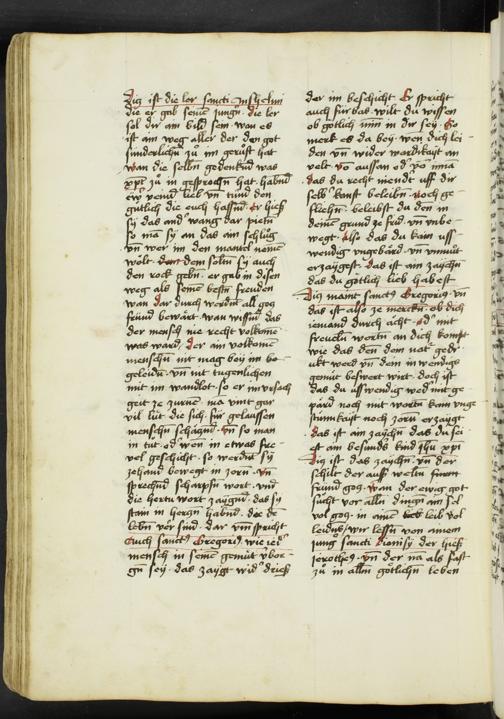 Diß ist die ler sancti Anshelmi
die er gab seinē jungn̄ die ler
sol dir ain bild sein wan es
ist ain weg aller der dein got
sunderlichn̄ zů im gerüft hat
wan die selbn̄ gedenknd was
xp̄c zů in gesprochn̄ hat habnd
ew veind lieb vn̄ tund den
gütlich die euch hassnd Er hieß
sy das and' wang dar pietn̄
so ma sy an das ain schlüg
vn̄ wer in den mantel neme
wolt dem soltn̄ sy auch
den rock gebn̄ er gab in disen
weg als seine bestn̄ freuden
wan dar durch werdn̄ all gocz
fründ bewärt wan wissnd das
der mensch nie recht volkome
was ward der ain volkome
menschn̄ mit mag bey im be-
geleidn̄ vn̄ mit tugenlichen
mit im wandlet so er im vrsach
geit ze zurnē ma vint gar
vil lüt die sich für gelaussen
menschn̄ schäcznd vn̄ so man
in tut od' wen in etwas fre-
vel geschicht so werdn̄ sy
zehand bewegt in zorn vn̄
sprechnd scharpfu wort vnd
die hertu wort zaygnd das sy
stain in herczn habnd
lebn̄ ver sind dar vm̄ spricht
Auch sanctꝰ Gregoriꝰ wie
mensch in seinē gemüt
gn̄ sey das zaygt wid' drieß
der im beschicht Er spricht
auch fürbas wilt du wissen
ob götlich in dir sey So
merk es da bey wen dich lei-
den vn̄ wider wärtikayt an
velt vō aussan od' vō inna
das du recht niendt uff dir
selb' kanst beleibn̄ noch ge-
fliehn̄ beleibst du den in
deinē grund ze frid vn̄ unbe-
wegt Also das du kain uss
wendig ungebärd vn̄ unmůt
erzaygest das ist ain zaychn̄
das du götlich lieb hab est
Diß maint sanctꝰ Gregoriꝰ vn̄
das ist also ze merckn̄ ob dich
iemand durch ächt od' mit
frevelu wortn̄ an dich kompt
wie das den dein nat' gedr
ukt werd vn̄ dein in wendigs
gemüt beswert wirt doch ist
das du usswendig wed' mit ge-
pärd noch mit wortn̄ kain unge
stümikayt noch zorn erzaygt
das ist ain zaychn̄ das du sei
est ain besunds kind jhū xpī
Diß ist das zaychn̄ vn̄ der
schilt der auss weltn̄
fründ gocz wan der ewig got
sücht vor alln̄ dingn̄ ain sel
vol gocz in aine leib vol
leidns wir lesn̄ von ainem
jung' sancti Dionisy der hieß
Jerotheꝰ vn̄ der nā als fast
zů in alln̄ götlichn̄ leben